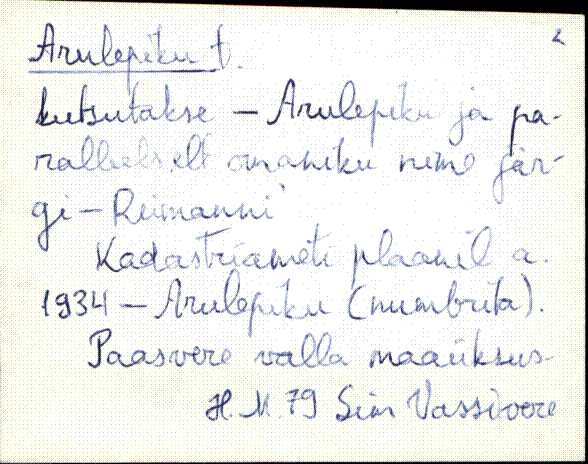 2
Arulepiku t.
kutsutakse – Arulepiku ja pa-
ralleelselt omaniku nime jär-
gi – Reimanni
Kadastriameti plaanil a.
1934 – Arulepiku (numbrita).
Paasvere valla maaüksus
H. M. 79 Sim Vassivere